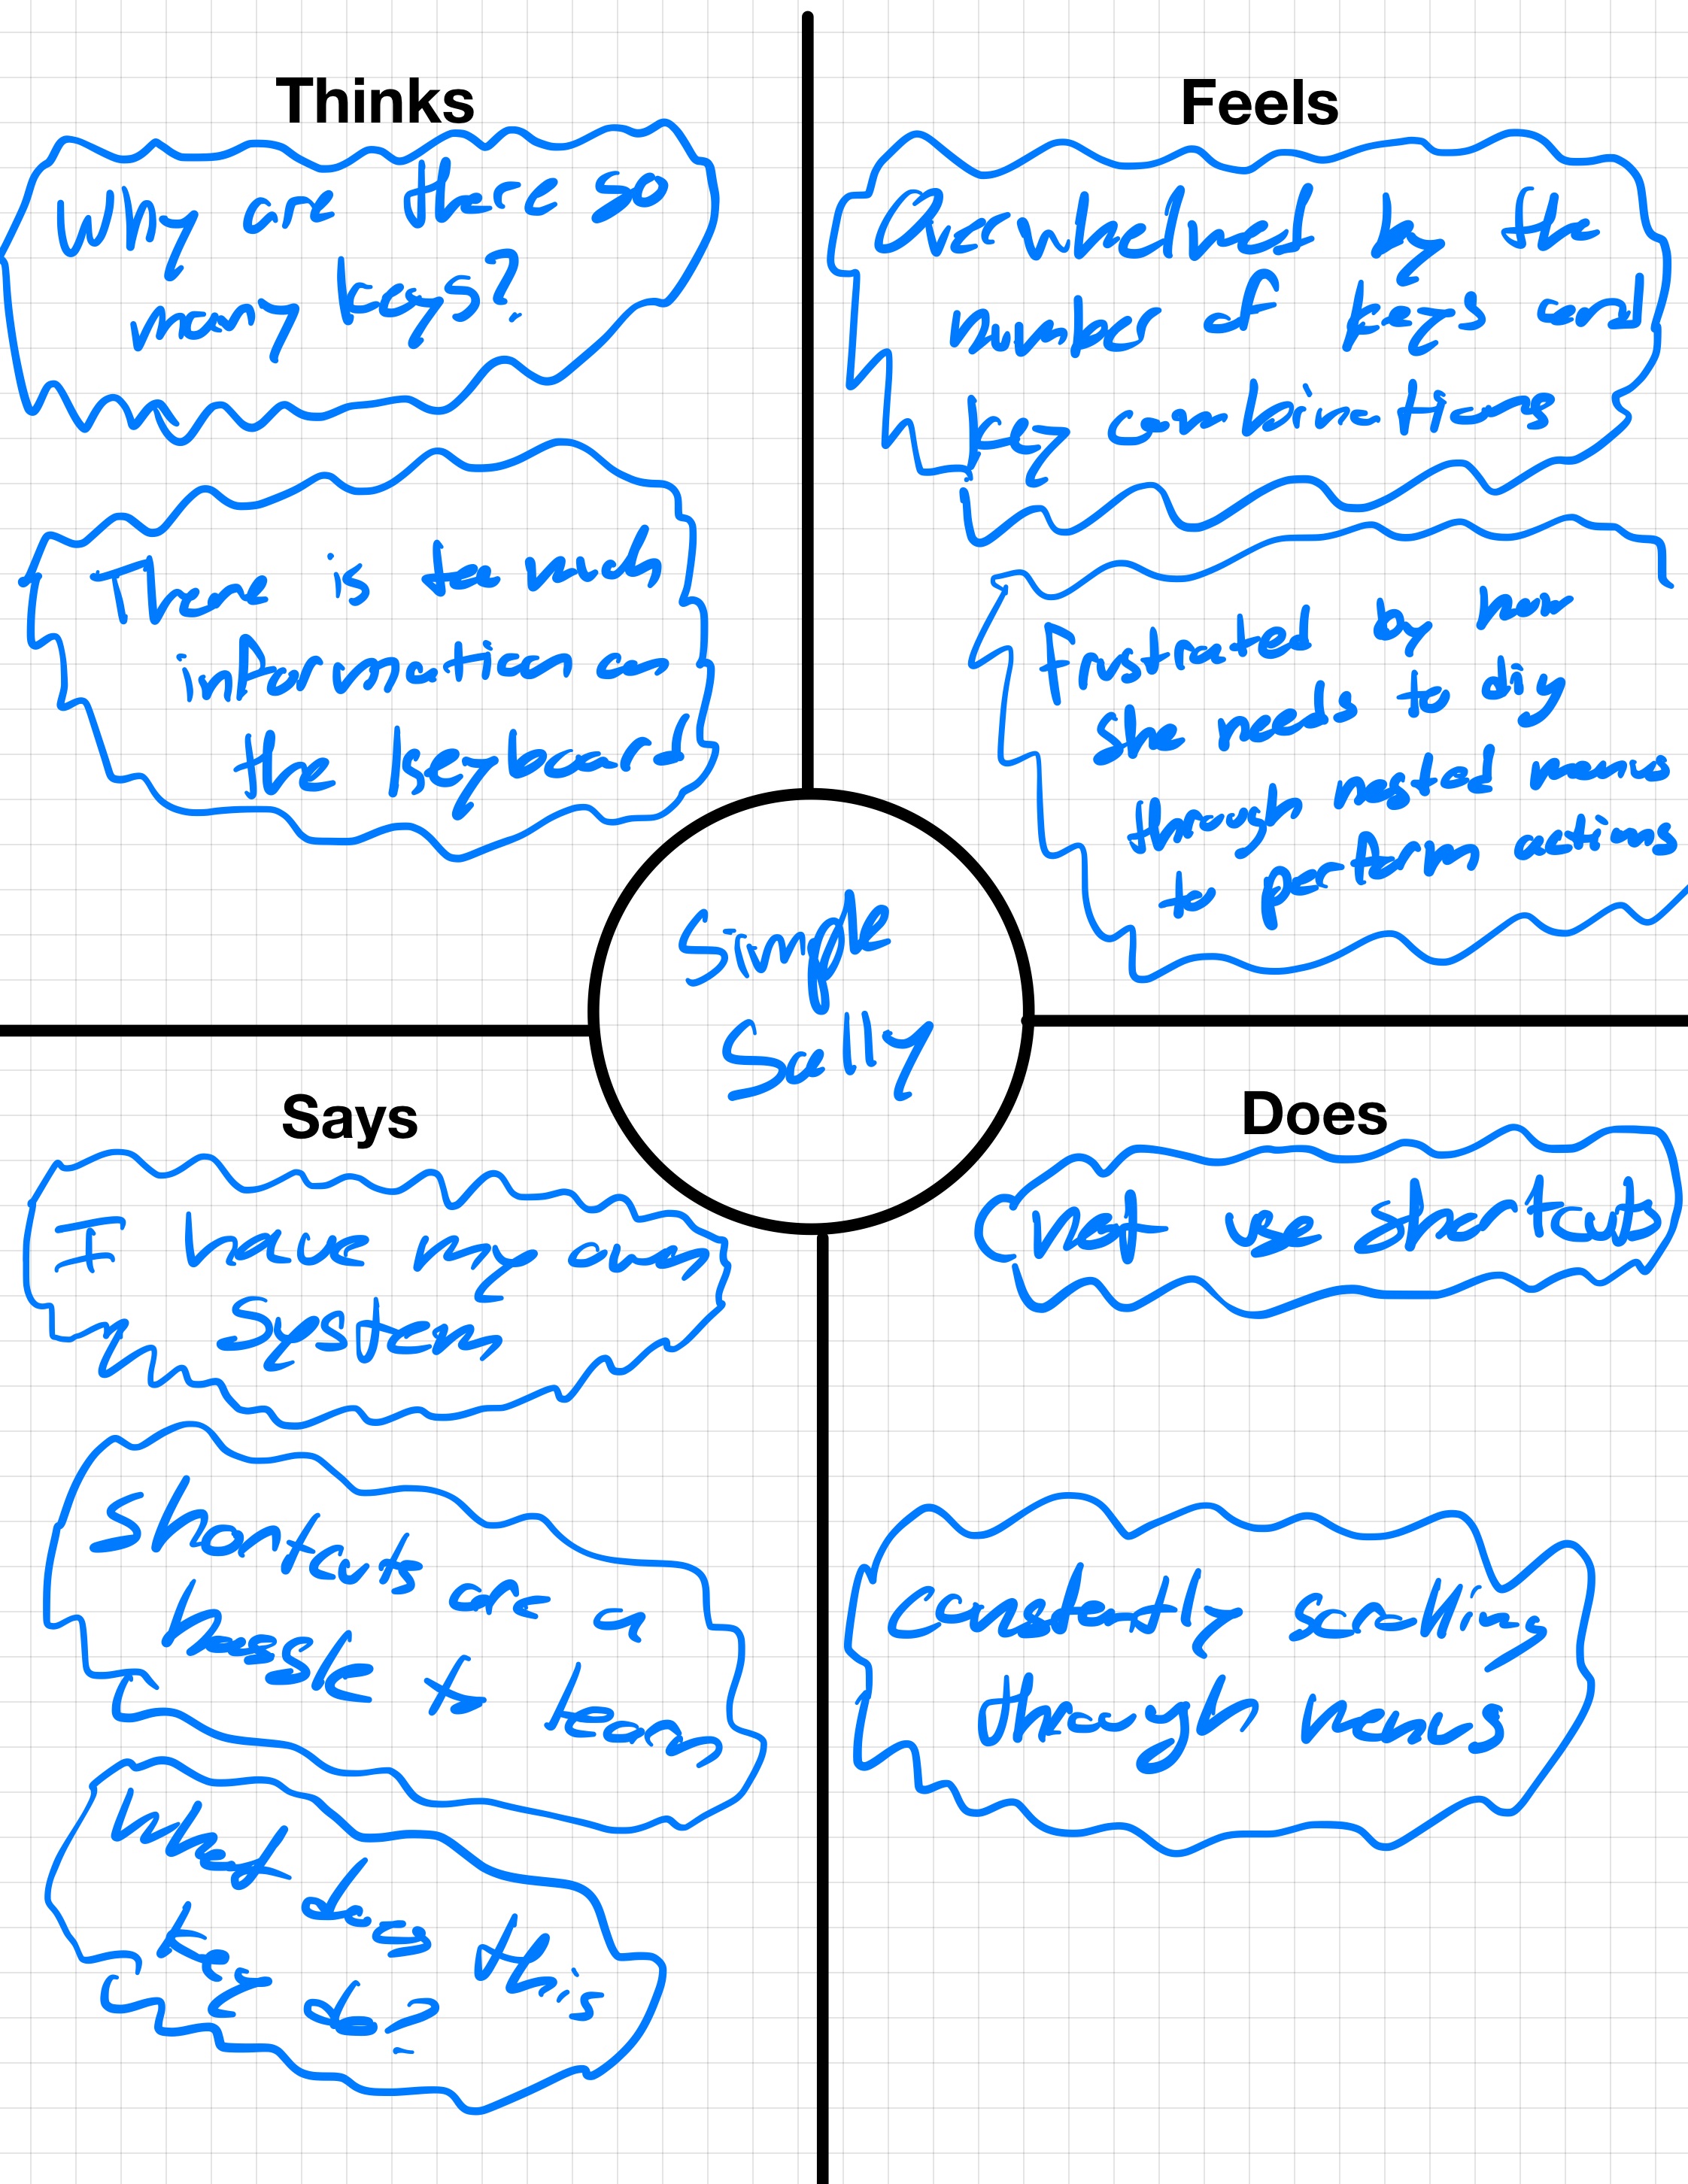 Thinks
Why are there so
many keys?
There is too much
information on
the keyboard
Feels
Overwhelmed by the
number of keys and
key combinations
Frustrated by how
she needs to dig
through nested menus
to perform actions
Simple
Sally
Says
I have my own
system
Shortcuts are a
hassle to learn
What does this
key do?
Does
not use shortcuts
constantly searching
through menus